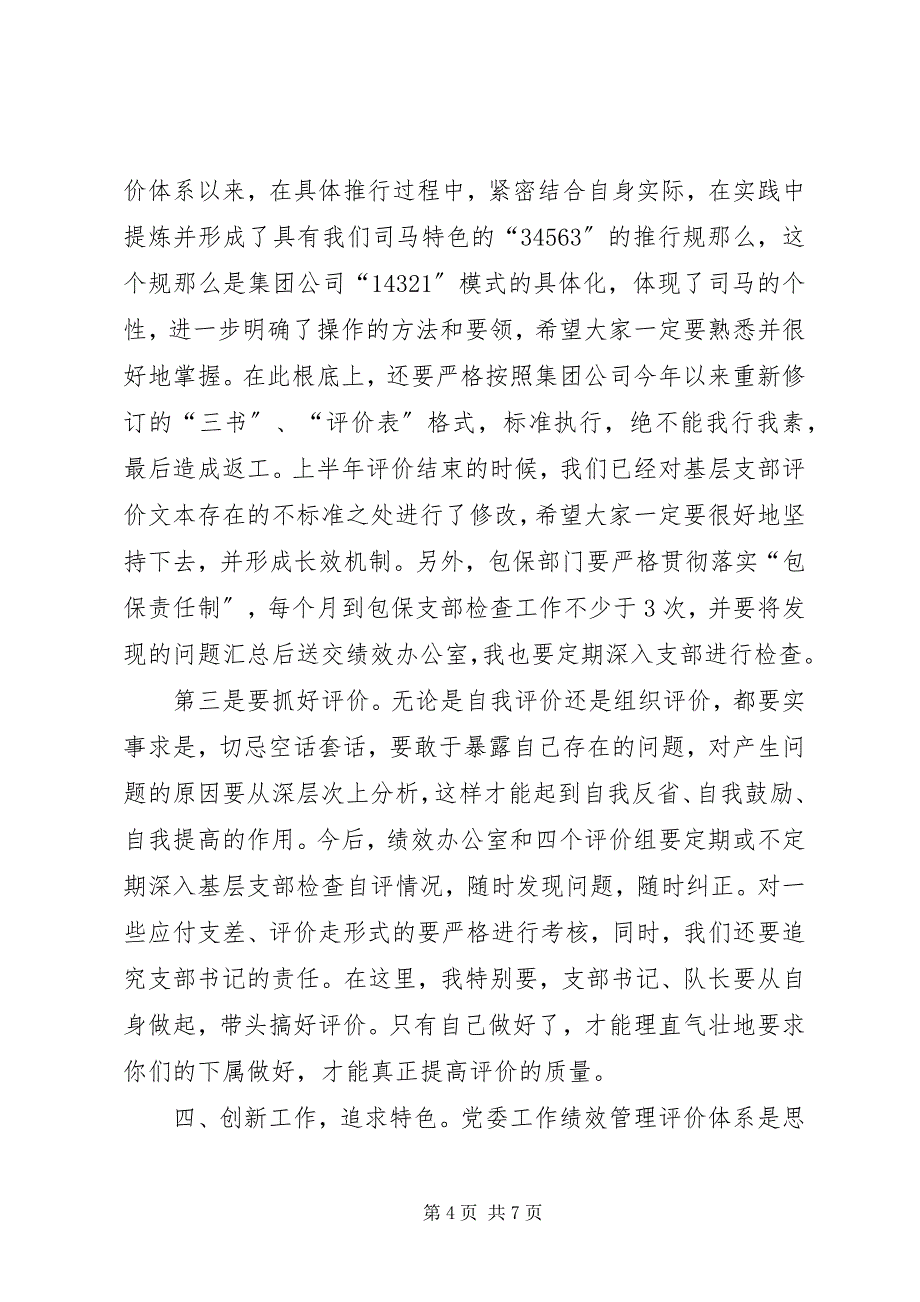 价体系以来，在具体推行过程中，紧密结合自身实际，在实践中
提炼并形成了具有我们司马特色的“34563〞的推行规那么，这
个规那么是集团公司“14321〞模式的具体化，体现了司马的个
性，进一步明确了操作的方法和要领，希望大家一定要熟悉并很
好地掌握。在此根底上，还要严格按照集团公司今年以来重新修
订的“三书〞、“评价表〞格式，标准执行，绝不能我行我素，
最后造成返工。上半年评价结束的时候，我们已经对基层支部评
价文本存在的不标准之处进行了修改，希望大家一定要很好地坚
持下去，并形成长效机制。另外，包保部门要严格贯彻落实“包
保责任制〞，每个月到包保支部检查工作不少于 3 次，并要将发
现的问题汇总后送交绩效办公室，我也要定期深入支部进行检查。
第三是要抓好评价。无论是自我评价还是组织评价，都要实
事求是，切忌空话套话，要敢于暴露自己存在的问题，对产生问
题的原因要从深层次上分析，这样才能起到自我反省、自我鼓励、
自我提高的作用。今后，绩效办公室和四个评价组要定期或不定
期深入基层支部检查自评情况，随时发现问题，随时纠正。对一
些应付支差、评价走形式的要严格进行考核，同时，我们还要追
究支部书记的责任。在这里，我特别要，支部书记、队长要从自
身做起，带头搞好评价。只有自己做好了，才能理直气壮地要求
你们的下属做好，才能真正提高评价的质量。
四、创新工作，追求特色。党委工作绩效管理评价体系是思
第 4 页 共 7 页